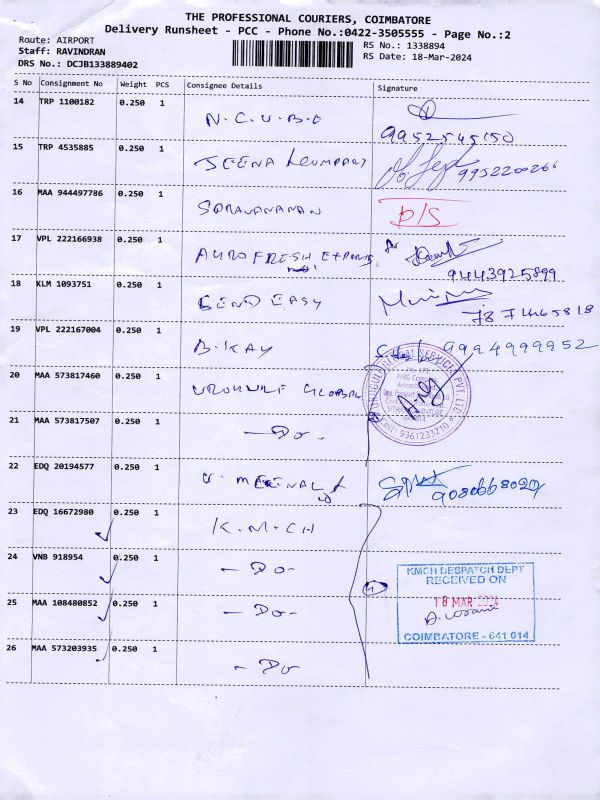 THE PROFESSIONAL COURIERS, COIMBATORE
Delivery Runsheet - PCC - Phone No.:0422-3505555 - Page No.:2
Route: AIRPORT
RS No.: 1338894
Staff: RAVINDRAN
RS Date: 18-Mar-2024
DRS No.: DCJB133889402
S No Consignment No Weight PCS Consignee Details Signature
14 TRP 1100182 0.250 1 N.C.U.B.E
15 TRP 4535885 0.250 1 JEENA
16 MAA 944497786 0.250 1 D/S
17 VPL 222166938 0.250 1 AUROFRESH EXPORTS for
9443925899
18 KLM 1093751 0.250 1 SEND EASY
19 VPL 222167004 0.250 1 B.KAY 9994999952
20 MAA 573817460 0.250 1 GLOBAL
21 MAA 573817507 0.250 1 - Do -
22 EDQ 20194577 0.250 1
23 EDQ 16672980 0.250 1 K.M.CH
24 VNB 918954 0.250 1 - Do -
25 MAA 108480852 0.250 1 - Do -
26 MAA 573203935 0.250 1 - Do
GLOBAL SERVICES PVT LTD
9361233210
4
KMCH DESPATCH DEPT
RECEIVED ON
18 MAR
COIMBATORE - 641 014